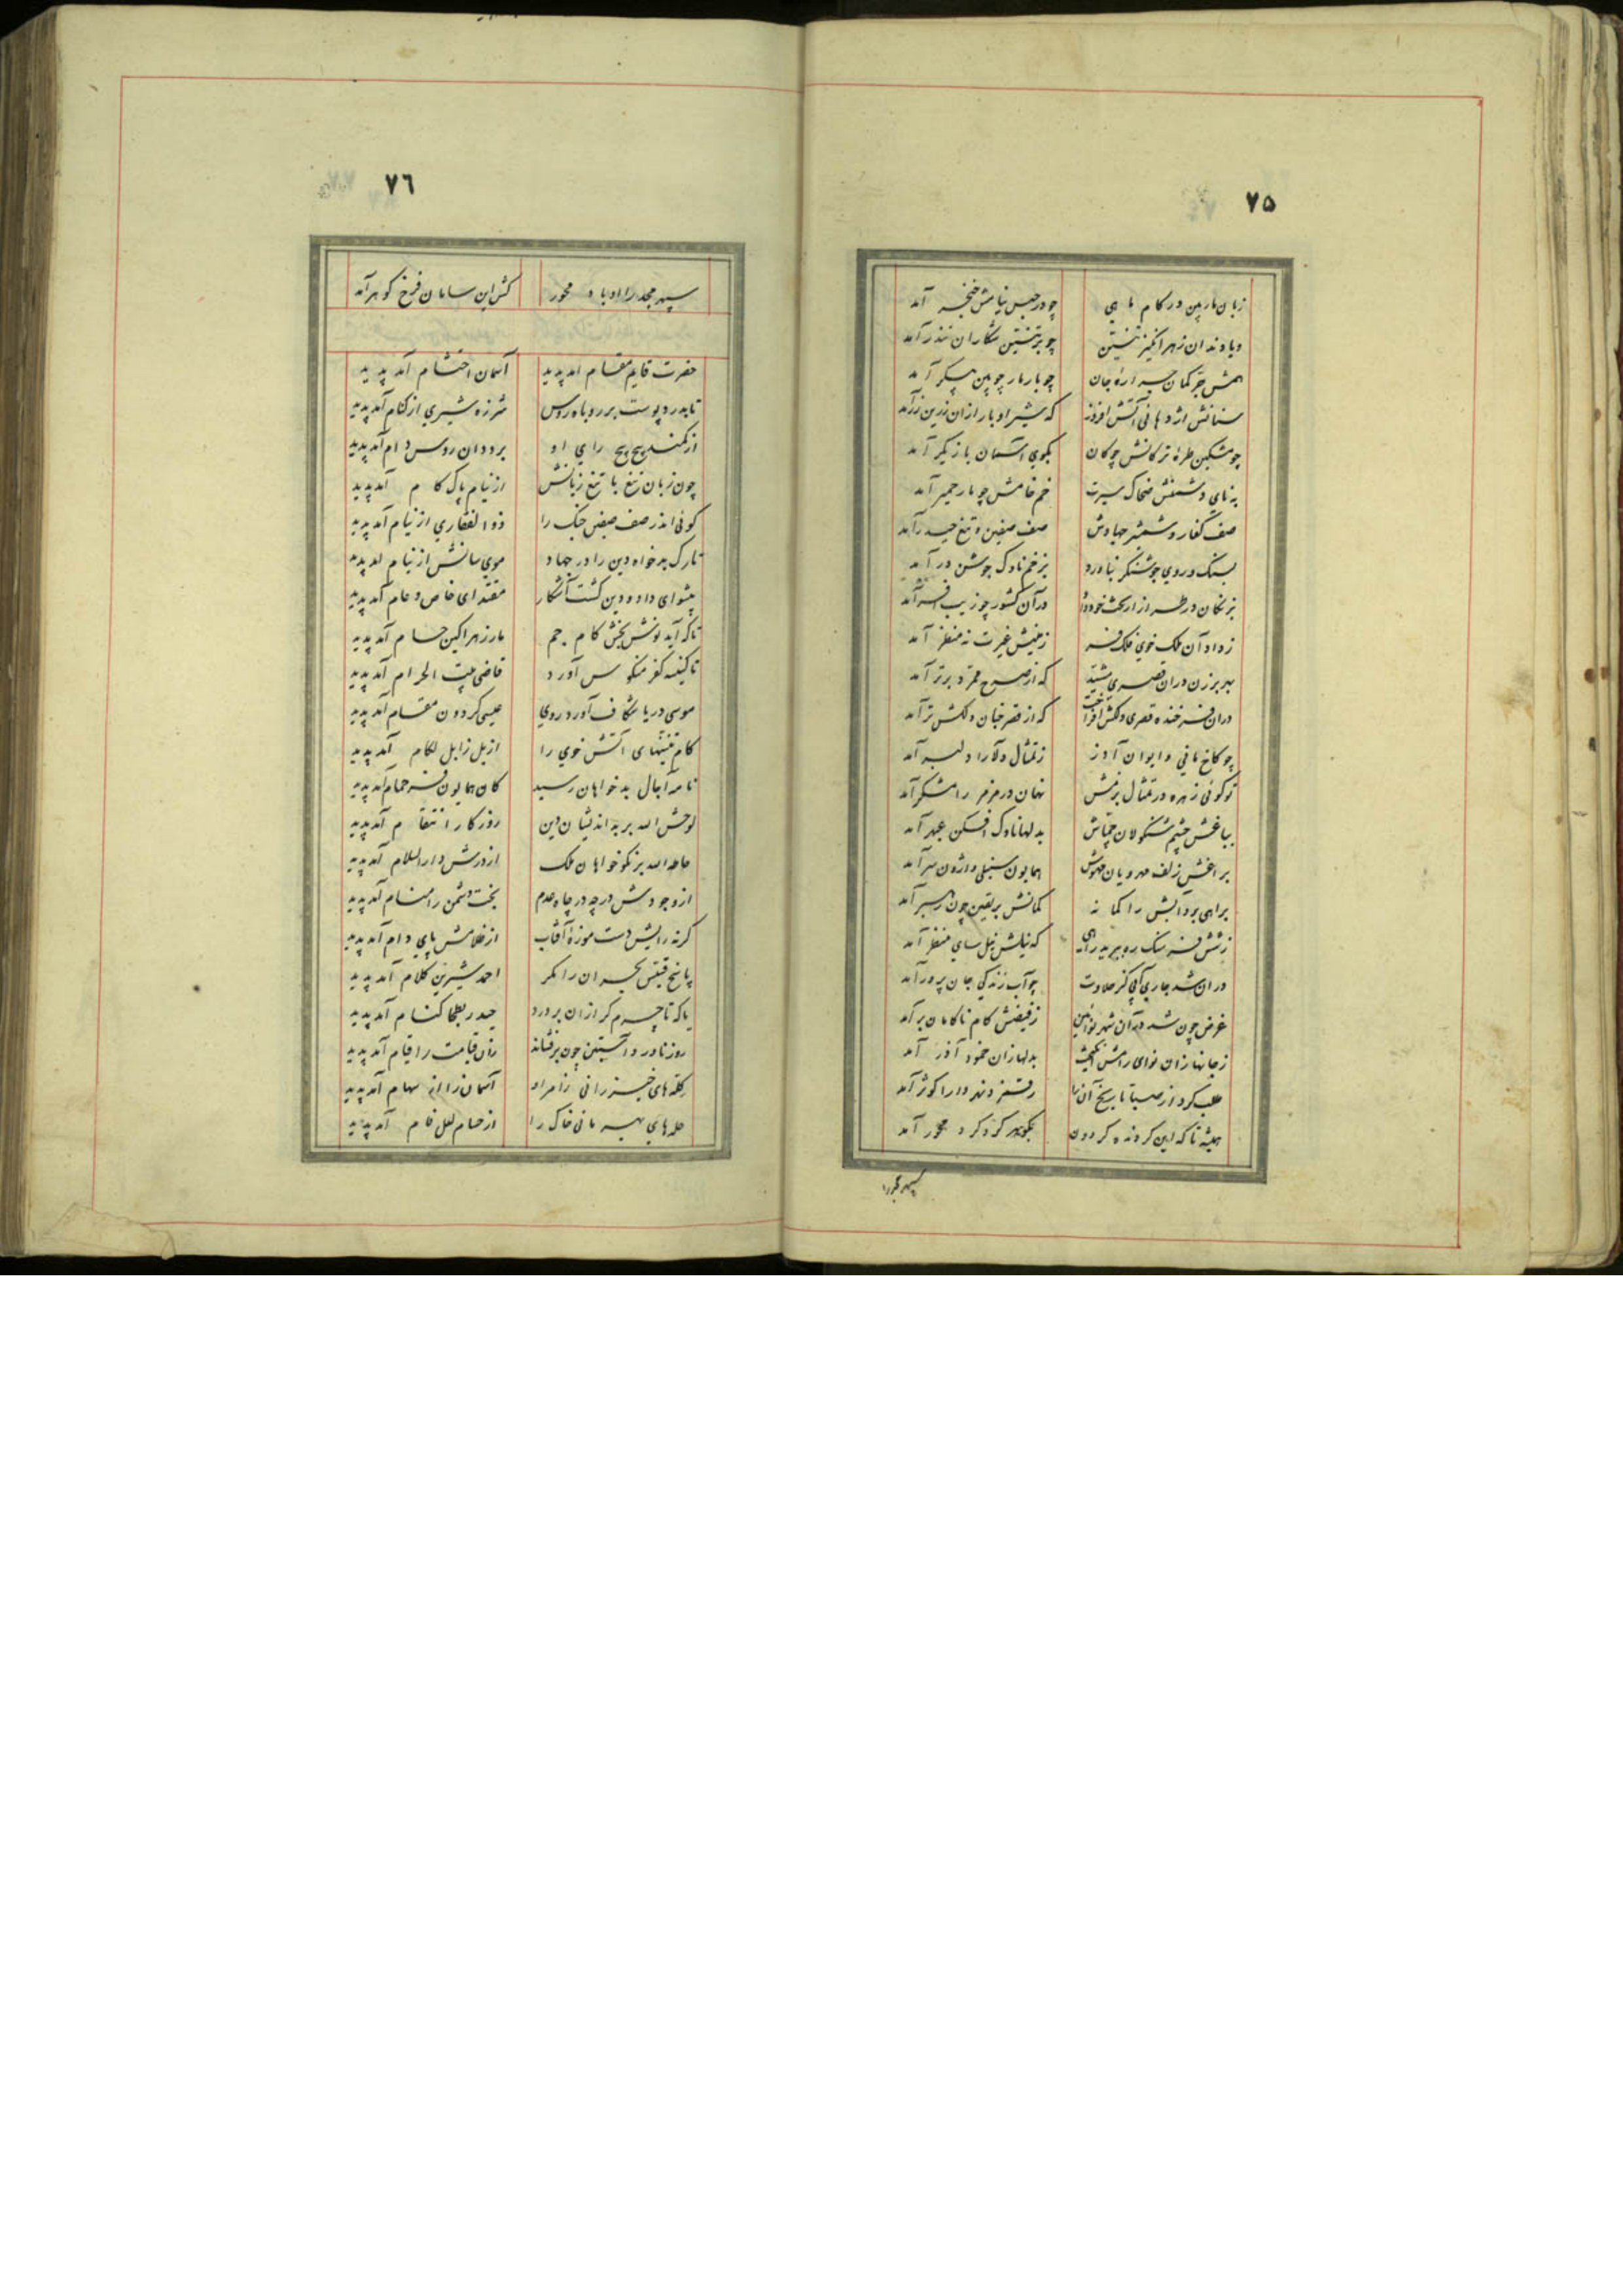 ۷۵
زبان مار بین در کام ماهی چو در جیب نیامش خنجر آمد
و یا دندان زهر انگیز تنین چو بر تنین شکاران تندر آمد
همش چتر کمان جان چو با رمار چوبین پیکر آمد
سنانش اژدهائی آتش افروز که شیر او بار ازان زرین آمد
چو مشکین طره ترکانش چوکان بکوی آسمان بازیکر آمد
بنای دشمنش ضحاک سیرت خم خامش چو مار حمیر آمد
صف کفار و شمشیر جهادش صف صفین و تیغ حیدر آمد
بسنک و روی جوشنکر نیاورد بزخم ناوک جوشن در آمد
در آن کشور چو زیب افسر آمد
زداد آن ملک خوی فلک فر زمینش غیرت نه منظر آمد
بهر برزن دران قصری که از صرح ممرد برتر آمد
دران فرخنده قصری دلکش که از قصر جنان دلکش تر آمد
چو کاخ مانی و ایوان آذر ز تمثال دلارا دلبر آمد
تو کوئی زهره در تمثال بزمش نهان در مزمر رامشکر آمد
بباغش چشم شنکولان چماش بدلها ناوک افکن عبهر آمد
براغش زلف مهرویان مهوش همایون سنبلی واژون سر آمد
براهی برد آبش را کمانه کمانش بر یقین چون رهبر آمد
که نیلش نیل سای منظر آمد
دران شد جاری آبی کز حلاوت چو آب زندکی جان پرور آمد
غرض چون شد در آن شهر ز فیضش کام ناکامان بر آمد
ز جانها زان نوای رامش بدلها زان خمود آذر آمد
طلب کرد از صبا تاریخ آن را رقمزد نهر دارا کوثر آمد
همیشه تا که این کردنده کردون بکوهر کرد کرد محور آمد
سپهر مجد را
۷۶
سپهر مجد را او باد محور کش این سامان فرخ کوهر آمد
حضرت قایم مقام آمد پدید آسمان احتشام آمد پدید
تا بدرد پوست بر روباه روس شرزه شیری از کنام آمد پدید
از کمند پیچ پیچ رای او بر ددان روس دام آمد پدید
چون زبان تیغ با تیغ زبانش از نیام پاک کام آمد پدید
کوئی اندر صف صفین جنک را ذوالفقاری از نیام آمد پدید
تارک بدخواه دین را در جهاد موی سانش از نیام آمد پدید
پیشوای داد و دین کشت آشکار مقتدای خاص و عام آمد پدید
تا که آید نوش بخش کام جم مار زهر اکین حسام آمد پدید
تا کنیسه کفر منکوس آورد قاضی بیت الحرام آمد پدید
موسی دریا شکاف آورد روی عیسی کردون مقام آمد پدید
کام تنینهای آتش خوی را از یل زابل لکام آمد پدید
نامه آجال بدخواهان رسید کان همایون فر همام آمد پدید
لوحش الله بر بد اندیشان دین روزکار انتقام آمد پدید
حامد الله بر نکوخواهان ملک از درش دارالسلام آمد پدید
از وجودش در چه در چاه عدم بخت دشمن را منام آمد پدید
کرنه رایش دست موزه آفتاب از ظلامش پای دام آمد پدید
پاسخ قیس بحیران را مکر احمد شیرین کلام آمد پدید
یا که تا چرم کرازان بر درد حیدر بطحا کنام آمد پدید
روز ناورد و آستین چون برفشاند زان قیامت را قیام آمد پدید
کله های خیزرانی زامر او آسمان را از سهام آمد پدید
حله های بهرمانی خاک را از حسام لعل فام آمد پدید